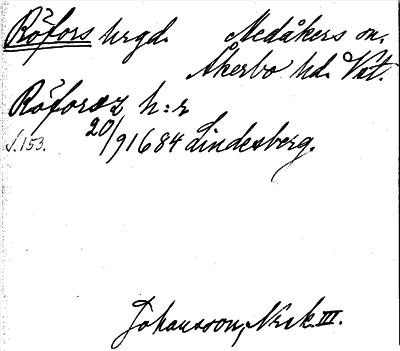 Röfors hrgd. Medåkers sn.
Åkerbo hd. Vstl.
Röforsz h:r
s. 153. 20/9 1684 Lindesberg.
Johansson, Nerk. III.